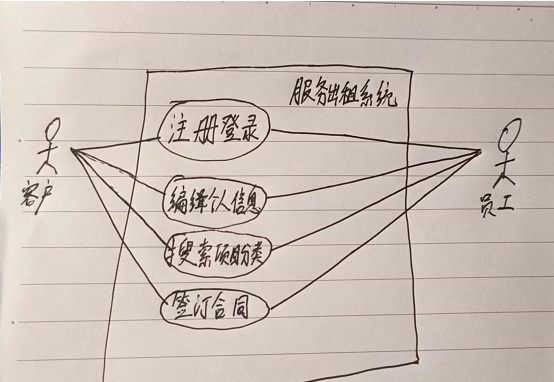 服务出租系统
注册登录
客户
编辑个人信息
员工
搜索项目分类
签订合同